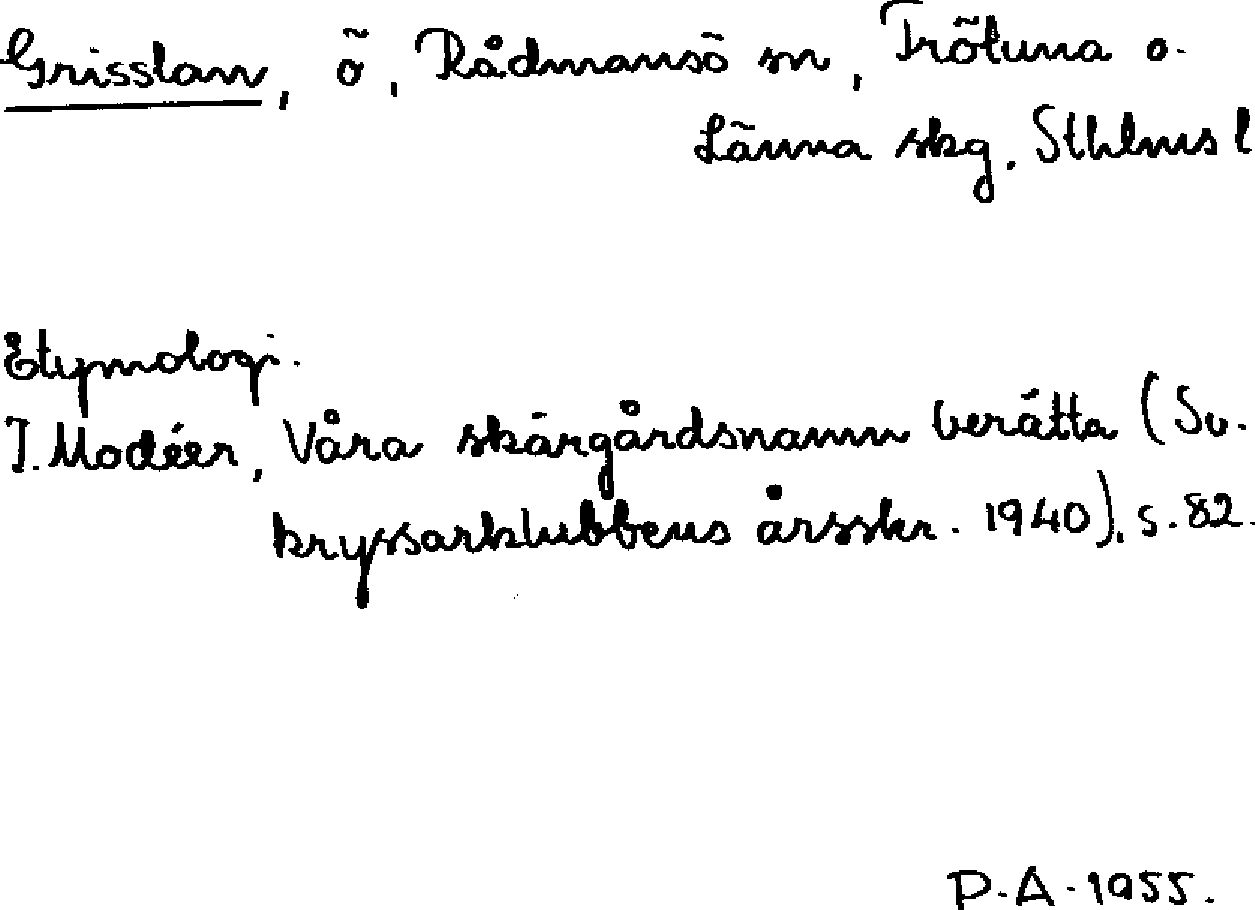 Grisslan, ö, Rådmansö sn, Frötuna o.
Länna skg. Sthlms l
Etymologi.
I. Modéer, Våra skärgårdsnamn berätta (Sv.
kryssarklubbens årsskr. 1940), s. 82.
P.A. 1955.